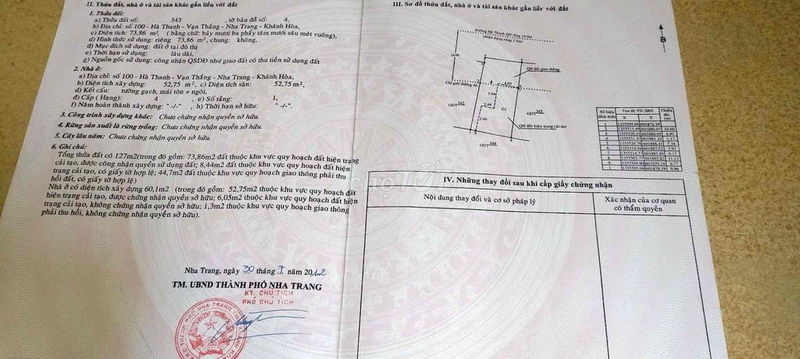 II. Thửa đất, nhà ở và tài sản khác gắn liền với đất
1. Thửa đất:
a) Thửa đất số: 343 , tờ bản đồ số: 4,
b) Địa chỉ: số 100 - Hà Thanh - Vạn Thắng - Nha Trang - Khánh Hòa,
c) Diện tích: 73,86 m², ( bằng chữ: bảy mươi ba phẩy tám mươi sáu mét vuông),
d) Hình thức sử dụng: riêng 73,86 m², chung: không,
đ) Mục đích sử dụng: đất ở tại đô thị
e) Thời hạn sử dụng: lâu dài,
g) Nguồn gốc sử dụng: công nhận QSDĐ như giao đất có thu tiền sử dụng đất
2. Nhà ở:
a) Địa chỉ: số 100 - Hà Thanh - Vạn Thắng - Nha Trang - Khánh Hòa,
b) Diện tích xây dựng: 52,75 m², c) Diện tích sàn: 52,75 m²,
d) Kết cấu: tường gạch, mái tôn + ngói,
đ) Cấp (Hạng): 4 e) Số tầng: 1,
f) Năm hoàn thành xây dựng: " -/-" , h) Thời hạn sở hữu: " -/-".
3. Công trình xây dựng khác: Chưa chứng nhận quyền sở hữu.
4. Rừng sản xuất là rừng trồng: Chưa chứng nhận quyền sở hữu.
5. Cây lâu năm: Chưa chứng nhận quyền sở hữu.
6. Ghi chú:
Tổng thửa đất có 127m2(trong đó gồm: 73,86m2 đất thuộc khu vực quy hoạch đất hiện trạng
cải tạo, được công nhận quyền sử dụng đất; 8,44m2 đất thuộc khu vực quy hoạch đất hiện
trạng cải tạo, có giấy tờ hợp lệ; 44,7m2 đất thuộc khu vực quy hoạch giao thông phải thu
hồi đất, có giấy tờ hợp lệ)
Nhà ở có diện tích xây dựng 60,1m2 (trong đó gồm: 52,75m2 thuộc khu vực quy hoạch đất
hiện trạng cải tạo, được chứng nhận quyền sở hữu; 6,05m2 thuộc khu vực quy hoạch đất hiện
trạng cải tạo, không chứng nhận quyền sở hữu; 1,3m2 thuộc khu vực quy hoạch giao thông
phải thu hồi, không chứng nhận quyền sở hữu).
Nha Trang, ngày 30 tháng 7 năm 2012
TM. UBND THÀNH PHỐ NHA TRANG
KT. CHỦ TỊCH
PHÓ CHỦ TỊCH
III. Sơ đồ thửa đất, nhà ở và tài sản khác gắn liền với đất
B
QH đất giao thông
G1
QH đất hiện trạng cải tạo
IV. Những thay đổi sau khi cấp giấy chứng nhận
Nội dung thay đổi và cơ sở pháp lý
Xác nhận của cơ quan
có thẩm quyền